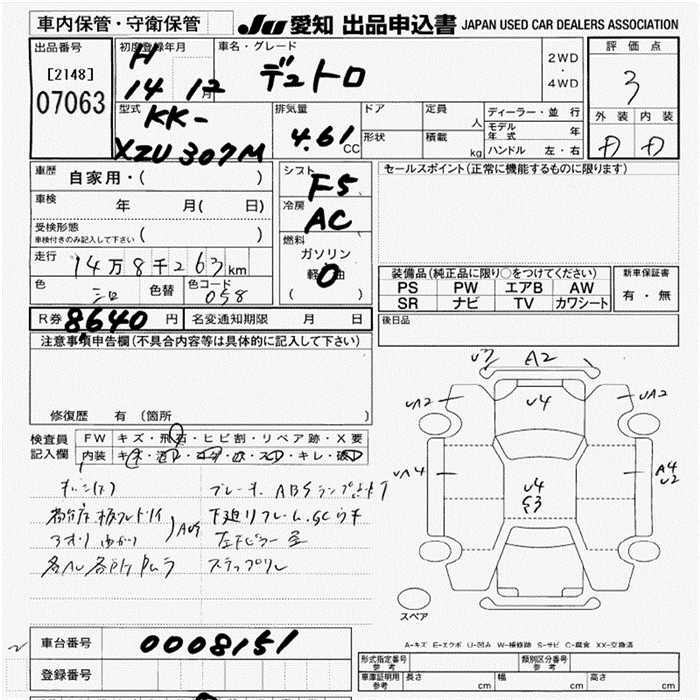 車内保管・守衛保管
JU 愛知 出品申込書 JAPAN USED CAR DEALERS ASSOCIATION
出品番号
[2148]
07063
初度登録年月
H
14 12 月
車名・グレード
デュトロ
2WD
・
4WD
評価点
3
外装 内装
D D
型式
KK-
XZU307M
排気量
4.61 CC
ドア
形状
定員 人
積載 kg
ディーラー・並行
モデル年式 年
ハンドル 左・右
車歴 自家用・( )
車検 年 月( 日)
受検形態
車検付きのみ記入して下さい ( )
走行 14万8千263km
色 シロ 色替 色コード 058
シフト F5
冷房 AC
燃料
ガソリン
軽油
( )
セールスポイント(正常に機能するものに限ります)
装備品(純正品に限り○をつけてください)
PS PW エアB AW
SR ナビ TV カワシート
新車保証書
有・無
R券 8,640 円 名変通知期限 月 日
後日品
注意事項申告欄(不具合内容等は具体的に記入して下さい)
修復歴 有(箇所 )
検査員
記入欄
FW キズ・飛石・ヒビ割・リペア跡・X要
内装
ブレーキ、ABSランプ
下廻リフレーム、
各パル各所
ステップ
U7 A2
UA2 U4 UA2
UA4 U4 S3 A4 U2
スペア
A-キズ E-エクボ U-凹み W-補修跡 S-サビ C-腐食 XX-交換済
車台番号 0008151
登録番号
形式指定番号 参考
類別区分番号 参考
車庫証明用 参考 長さ cm 幅 cm 高さ cm